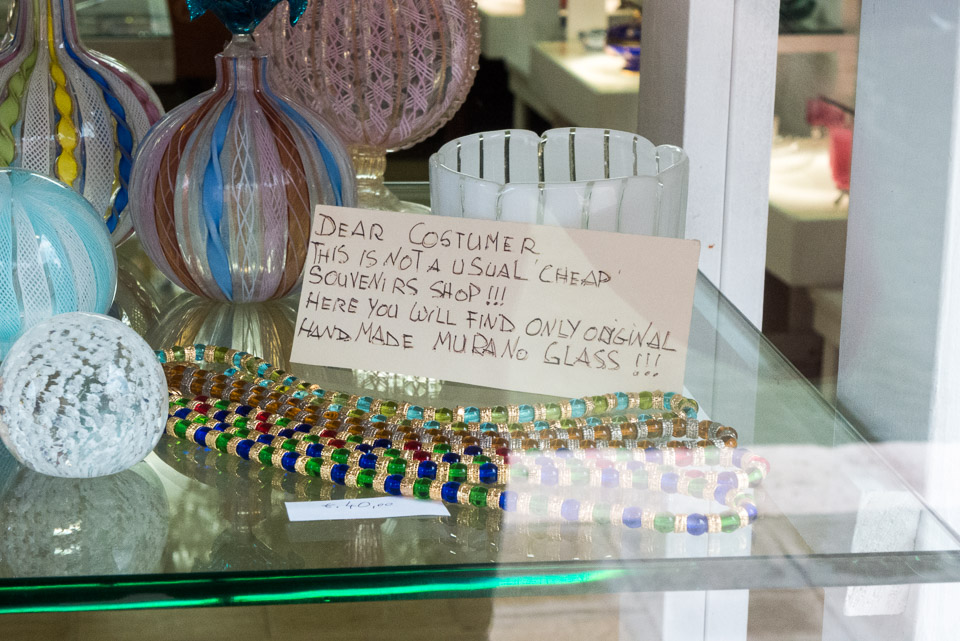 DEAR COSTUMER
THIS IS NOT A USUAL 'CHEAP'
SOUVENIRS SHOP!!!
HERE YOU WILL FIND ONLY ORIGINAL
HAND MADE MURANO GLASS!!!
€ 40,00